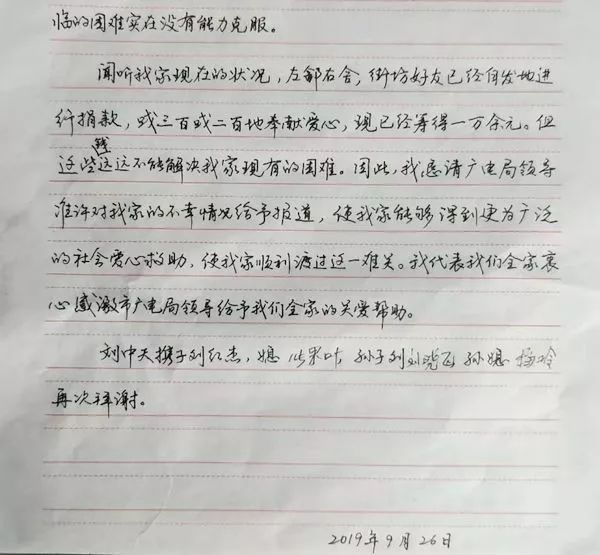 临的困难实在没有能力克服。
闻听我家现在的状况，左邻右舍，街坊好友已经自发地进
行捐款，或三百或二百地奉献爱心，现已经筹得一万余元。但
这些钱远远不能解决我家现有的困难。因此，我恳请广电局领导
准许对我家的不幸情况给予报道，使我家能够得到更为广泛
的社会爱心救助，使我家顺利渡过这一难关。我代表我们全家衷
心感激市广电局领导给予我们全家的关爱帮助。
刘中天携子刘红杰，媳 孙子刘 刘晓飞 孙媳 杨玲
再次拜谢。
2019年9月26日